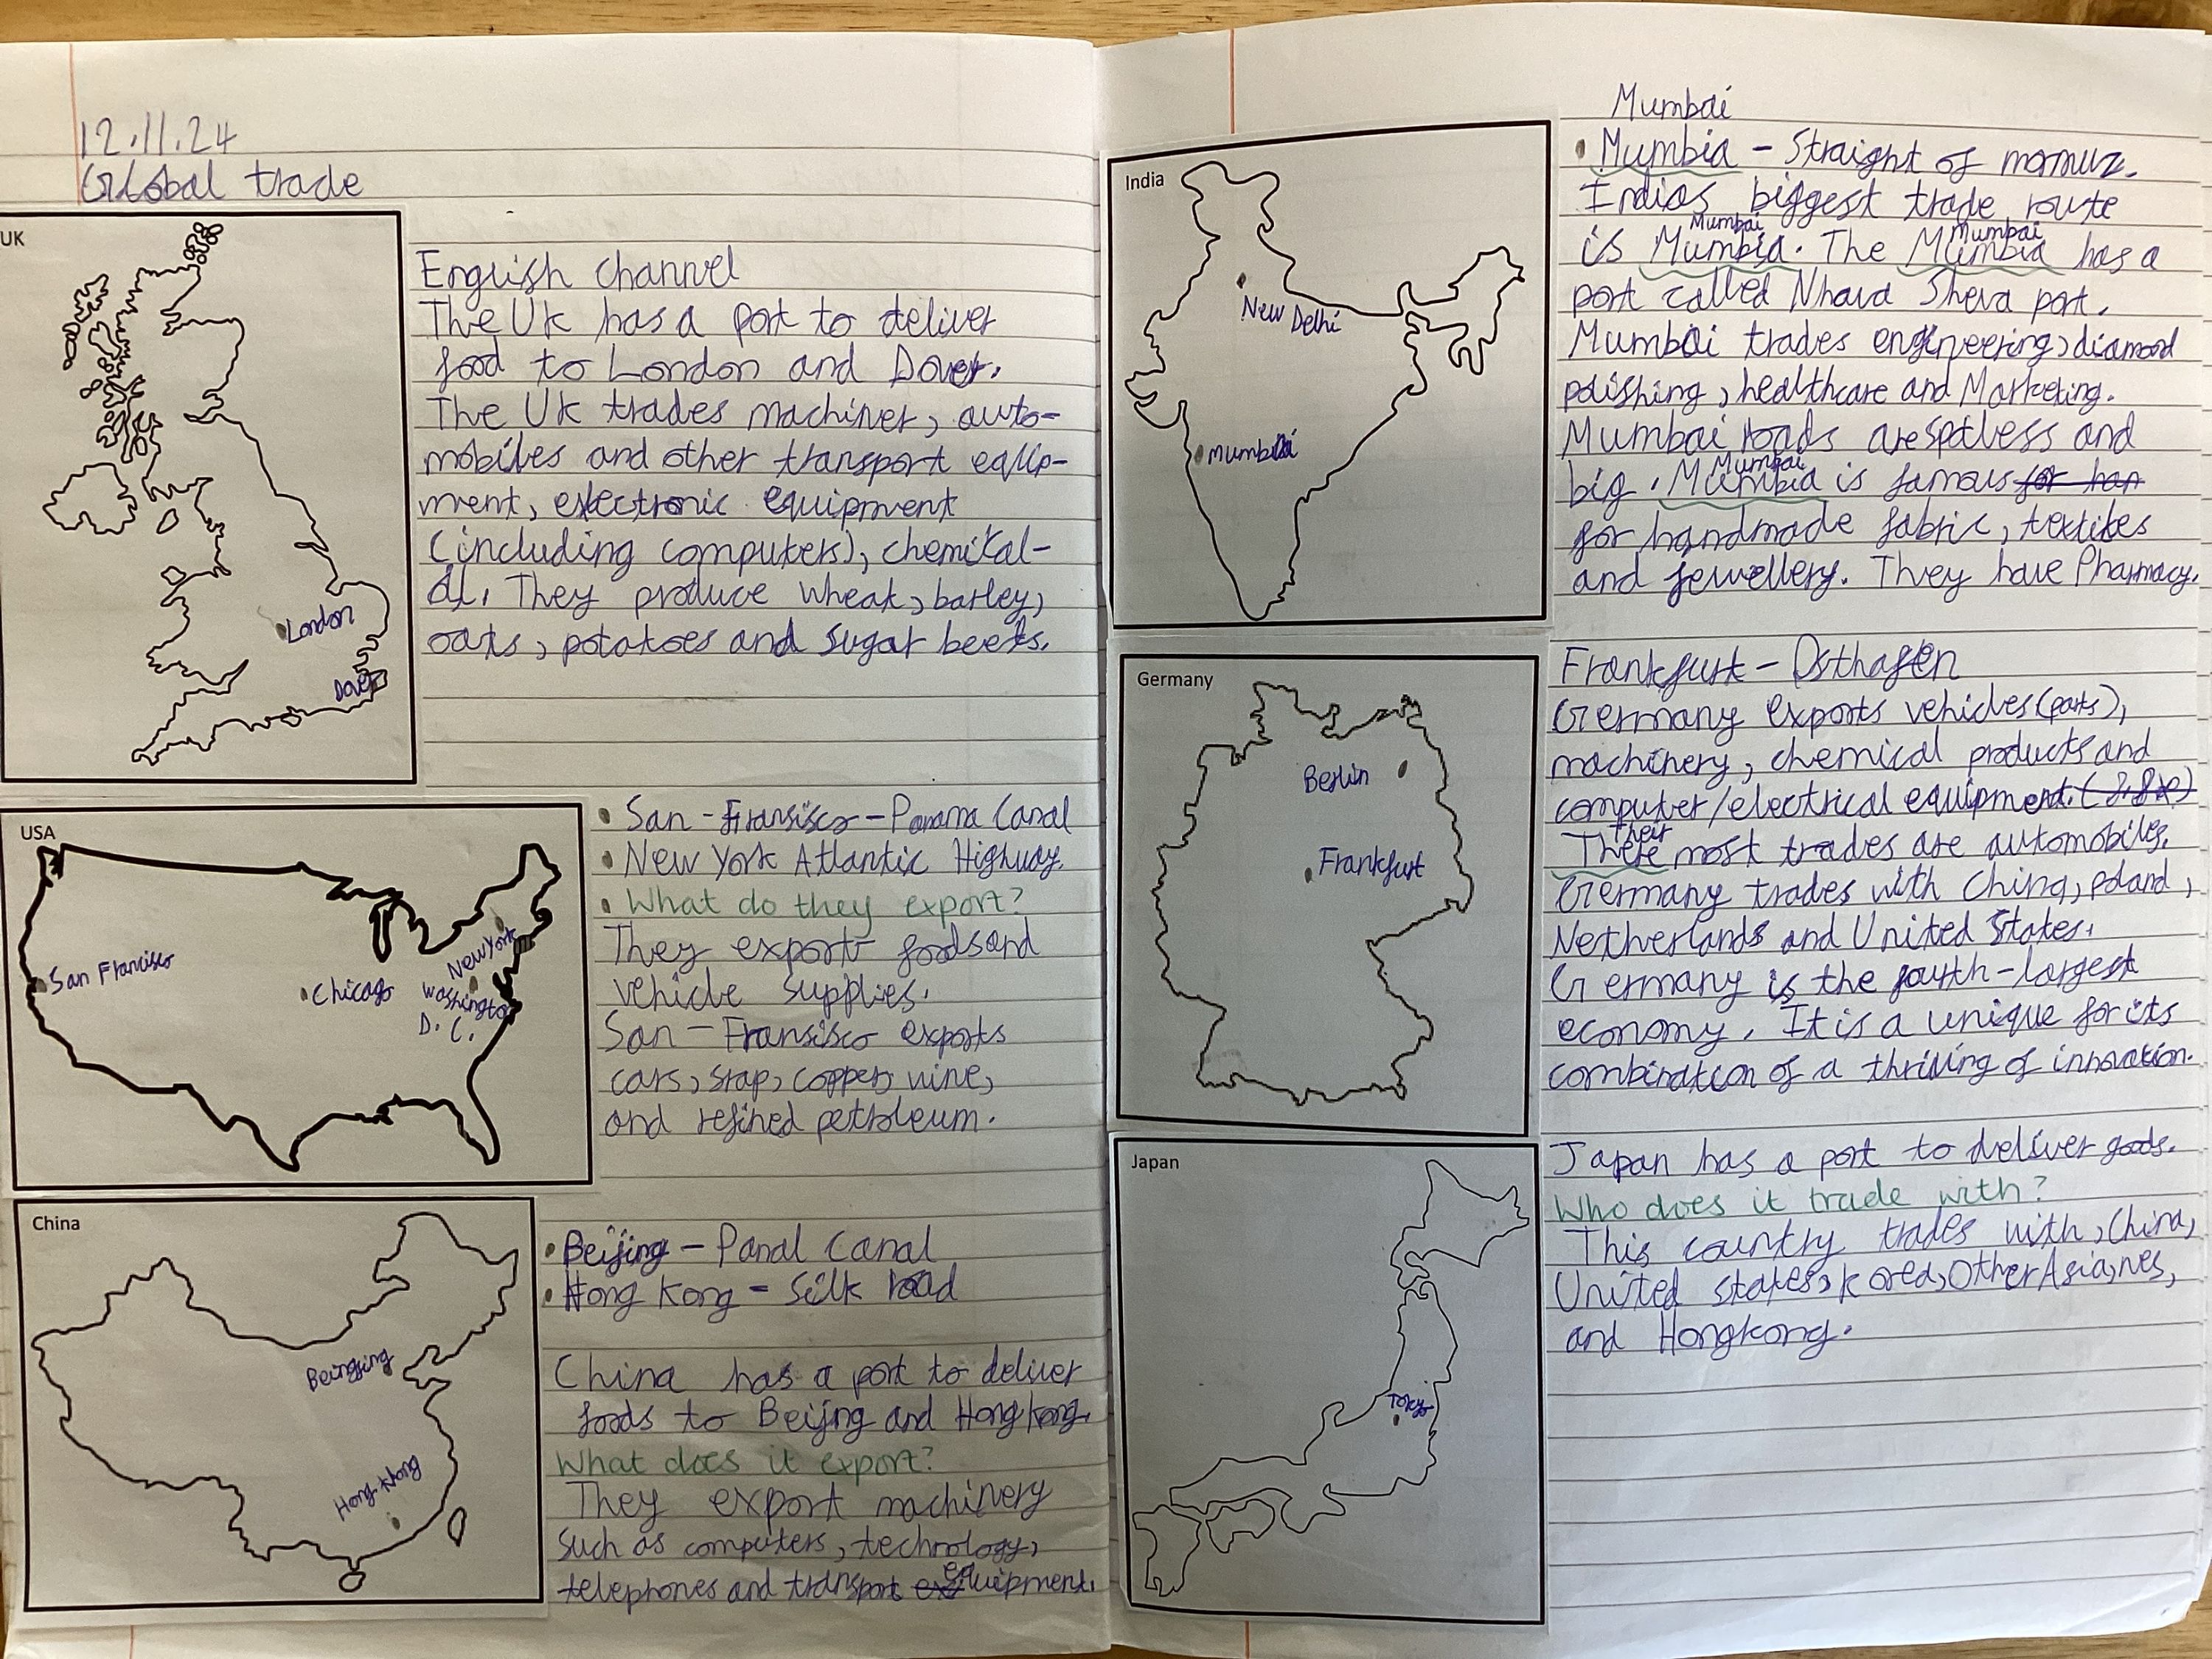 12.11.24
Global trade
UK
London
Dover
English channel
The UK has a port to deliver
food to London and Dover.
The UK trades machiner, auto-
mobiles and other transport equip-
ment, electronic equipment
(including computers), chemikal-
al. They produce wheat, barley,
oats, potatoes and sugar beets.
USA
San Francisco
Chicago
New York
Washington
D. C.
• San-Fransisco - Panama Canal
• New York Atlantic Highway.
• What do they export?
They export foods and
vehicle supplies.
San-Fransisco exports
cars, srap, copper, wine,
and refined petroleum.
China
Beingjing
Hong Kong
• Beijing - Panal Canal
• Hong Kong - Silk road
China has a port to deliver
foods to Beijing and Hong Kong.
What does it export?
They export machinery
such as computers, technology,
telephones and transport equipment.
India
New Delhi
Mumbai
Mumbai
• Mumbia - Straight of mamuz.
Indias biggest trade route
Mumbai Mumbai
is Mumbia. The Mumbia has a
port called Nhava Sheva port.
Mumbai trades engineering, diamond
polishing, healthcare and Marketing.
Mumbai roads are spotless and
Mumbai
big. Mumbia is famous for han
for handmade fabric, textiles
and jewellery. They have Pharmacy.
Germany
Berlin
Frankfurt
Frankfurt - Osthafen
Germany exports vehicles (parts),
machinery, chemical products and
computer/electrical equipment.
Their
There most trades are automobiles.
Germany trades with China, poland,
Netherlands and United States.
Germany is the fourth-largest
economy. It is a unique for its
combination of a thriving of innovation.
Japan
Tokyo
Japan has a port to deliver goods.
Who does it trade with?
This country trades with, China,
United states, korea, Other Asia, nes,
and Hongkong.